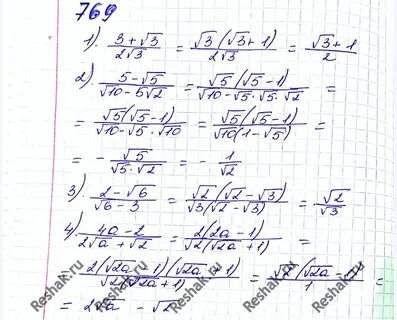 769
1). (3+√3)/(2√3) = (√3(√3+1))/(2√3) = (√3+1)/2
2). (5-√5)/(√10-5√2) = (√5(√5-1))/(√10-√5·√5·√2) =
= (√5(√5-1))/(√10-√5·√10) = (√5(√5-1))/(√10(1-√5)) =
= -√5/(√5·√2) = -1/√2
3). (2-√6)/(√6-3) = (√2(√2-√3))/(√3(√2-√3)) = √2/√3
4). (4a-2)/(2√a+√2) = (2(2a-1))/(√2(√2a+1)) =
= (2(√2a-1)(√2a+1))/(√2(√2a+1)) = (√2(√2a-1))/1 =
= 2√a - √2
Reshak.ru
Reshak.ru
Reshak.ru
Reshak.ru